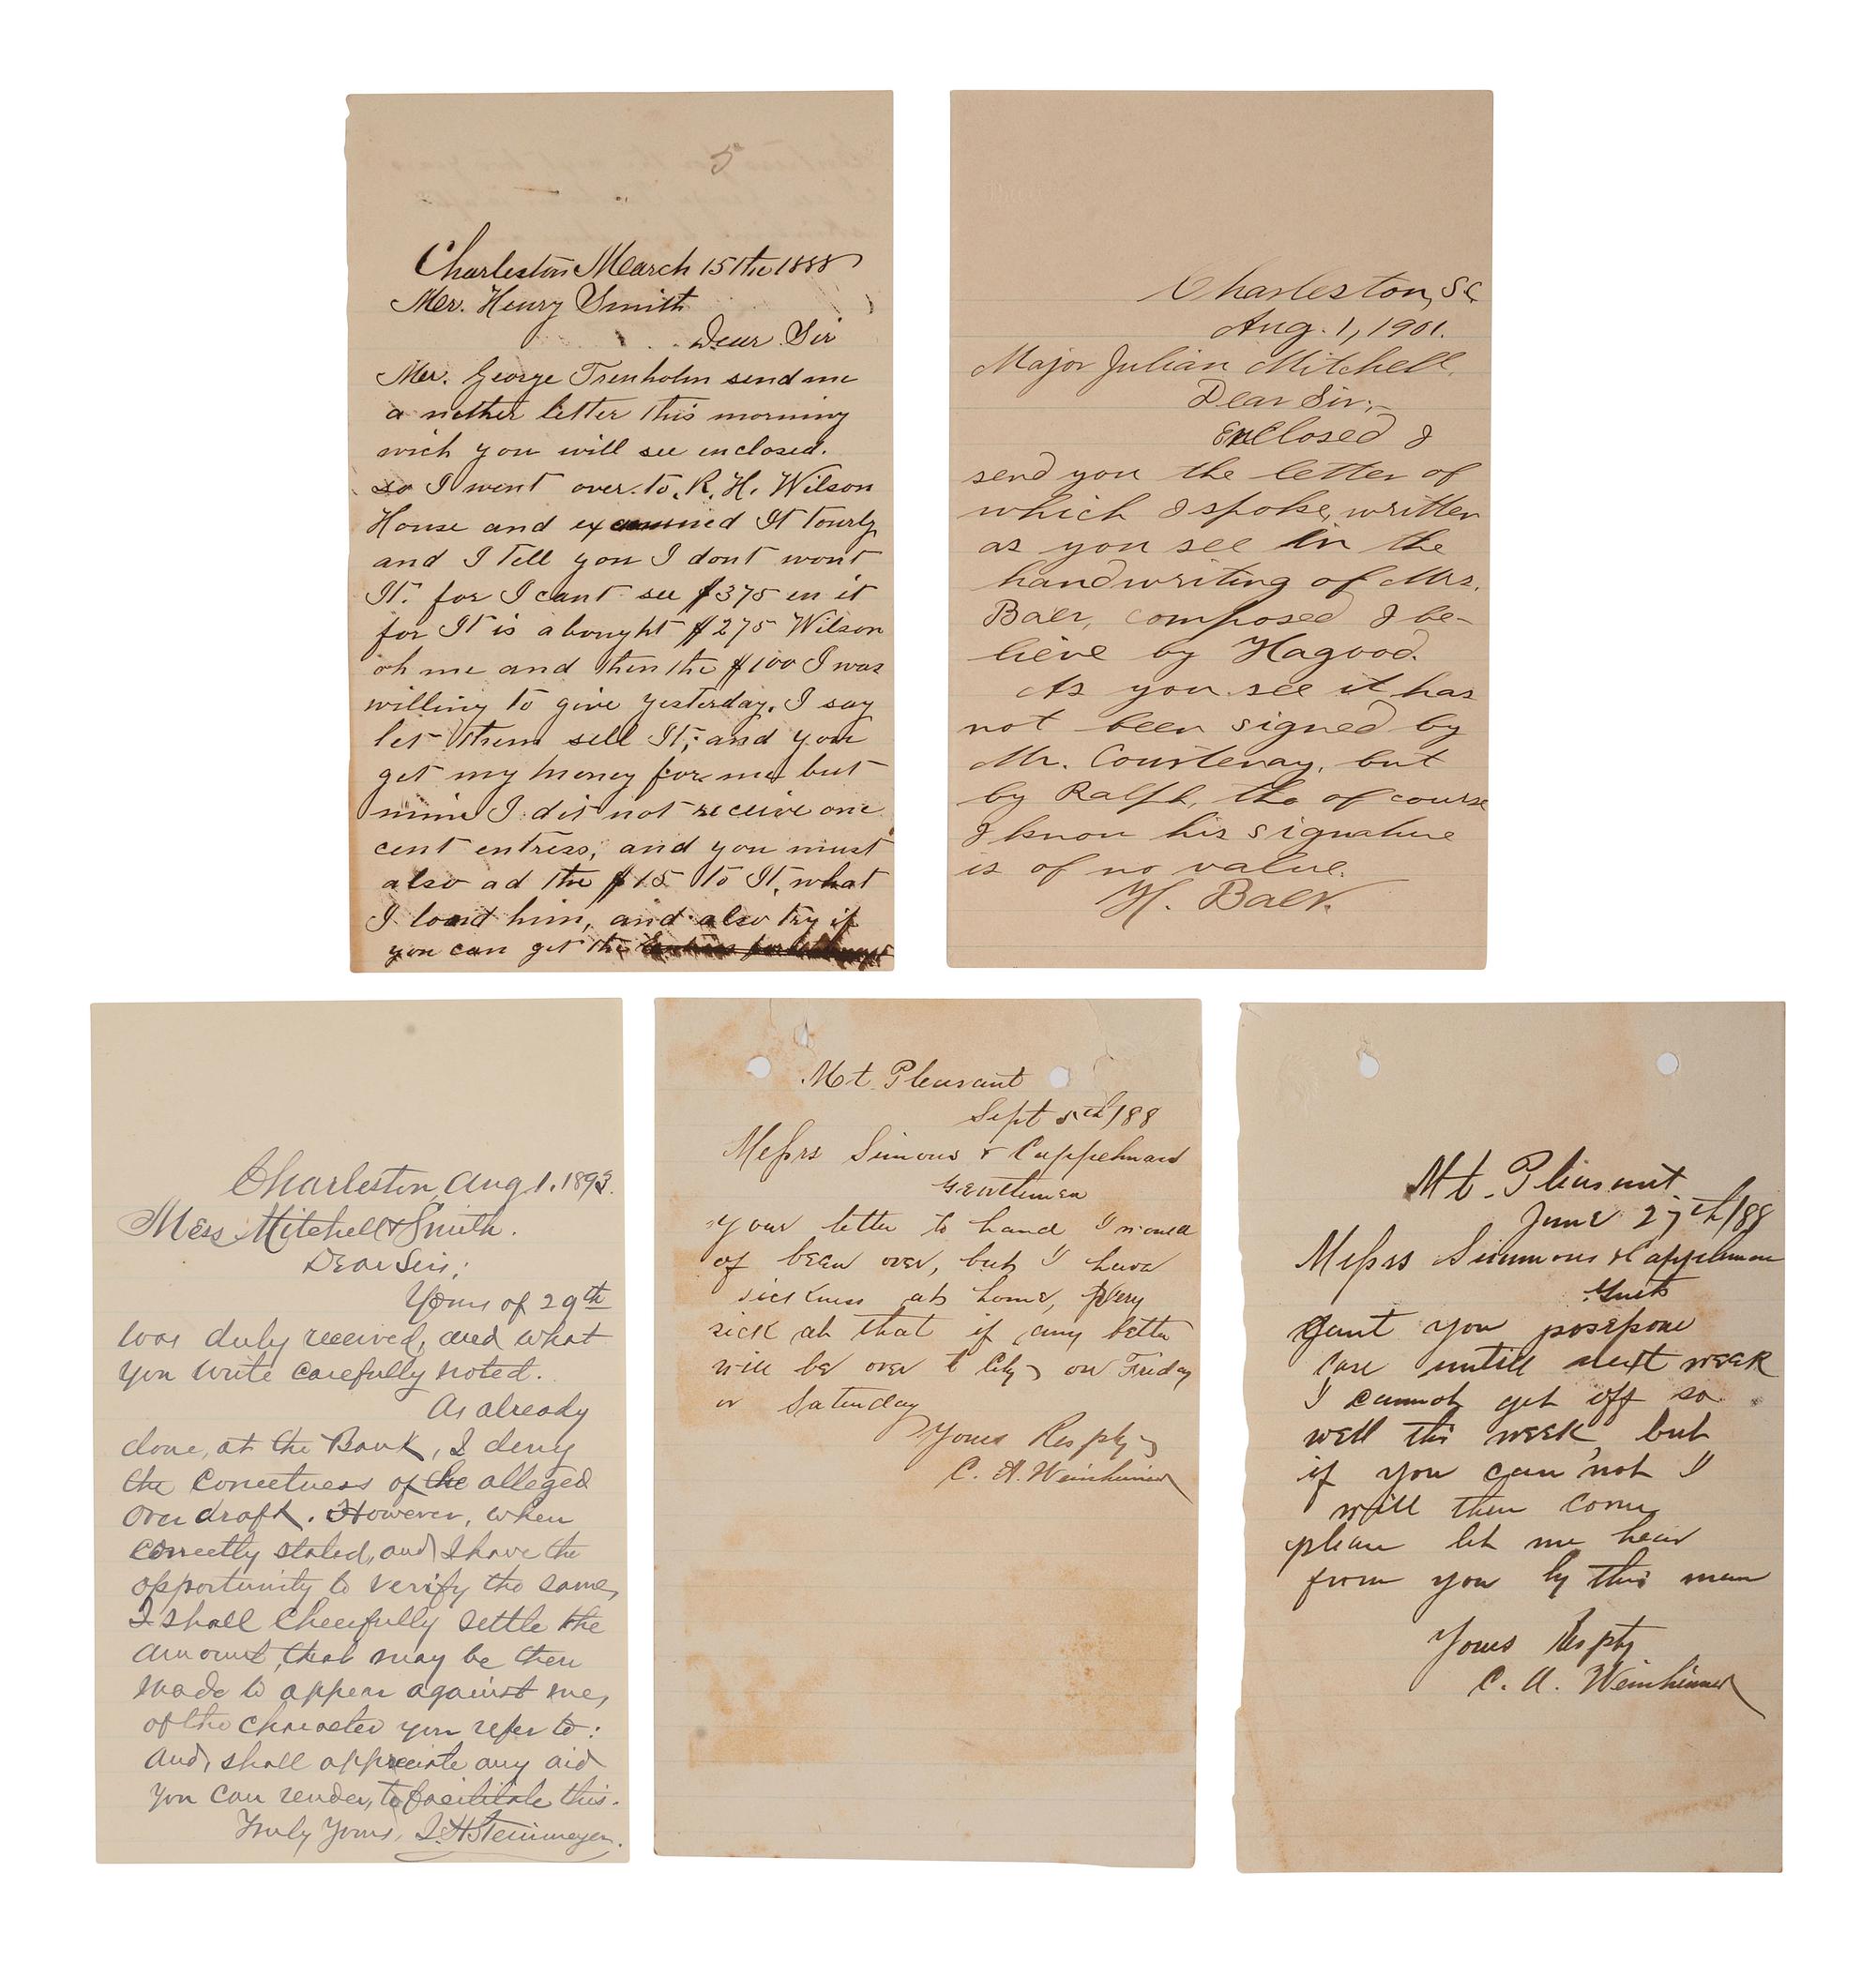 5
Charleston March 15the 1888
Mr. Henry Smith
Dear Sir
Mr. George Trenholm send me
a nother letter this morning
wich you will see enclosed.
so I went over to R. H. Wilson
House and examined It tourly
and I Tell you I dont wont
It. for I cant see $375 in it
for It is abought $275 Wilson
oh me and then the $100 I was
willing to give yesterday. I say
let them sell It, and you
get my money for me but
mind I dit not receive one
cent entress, and you must
also ad the $15 to It, what
I loand him, and also try if
you can get the
Charleston, SC
Aug. 1, 1901.
Major Julian Mitchell,
Dear Sir:-
Enclosed I
send you the letter of
which I spoke, written
as you see in the
handwriting of Mrs.
Baer, composed I be-
lieve by Hagood.
As you see it has
not been signed by
Mr. Courtenay, but
by Ralph, tho of course
I know his signature
is of no value.
H. Baer.
Charleston, Aug 1. 1893.
Mess Mitchell & Smith.
Dear Sirs;
Yours of 29th
was duly received, and what
you write carefully noted.
As already
done, at the Bank, I deny
the correctness of the alleged
over draft. However, when
correctly stated, and I have the
opportunity to verify the same,
I shall cheerfully settle the
amount, that may be then
made to appear against me,
of the character you refer to:
and, shall appreciate any aid
you can render, to facilitate this.
Truly Yours, J. H Steinmeyer.
Mt Pleasant
Sept 5th/88
Messrs Simons & Cappelmann
Gentlemen
Your letter to hand I would
of been over, but I have
sickness at home, very
sick at that if any better
will be over to City on Friday
or Saturday
Yours Resply
C. A. Weinheimer
Mt. Pleasant
June 27th/88
Messrs Simmons & Cappelman
Gents
Gant you posepone
case untill next week
I cannot get off so
well this week, but
if you can not I
will then come
please let me hear
from you by this man
Yours Respty
C. A. Weinheimer